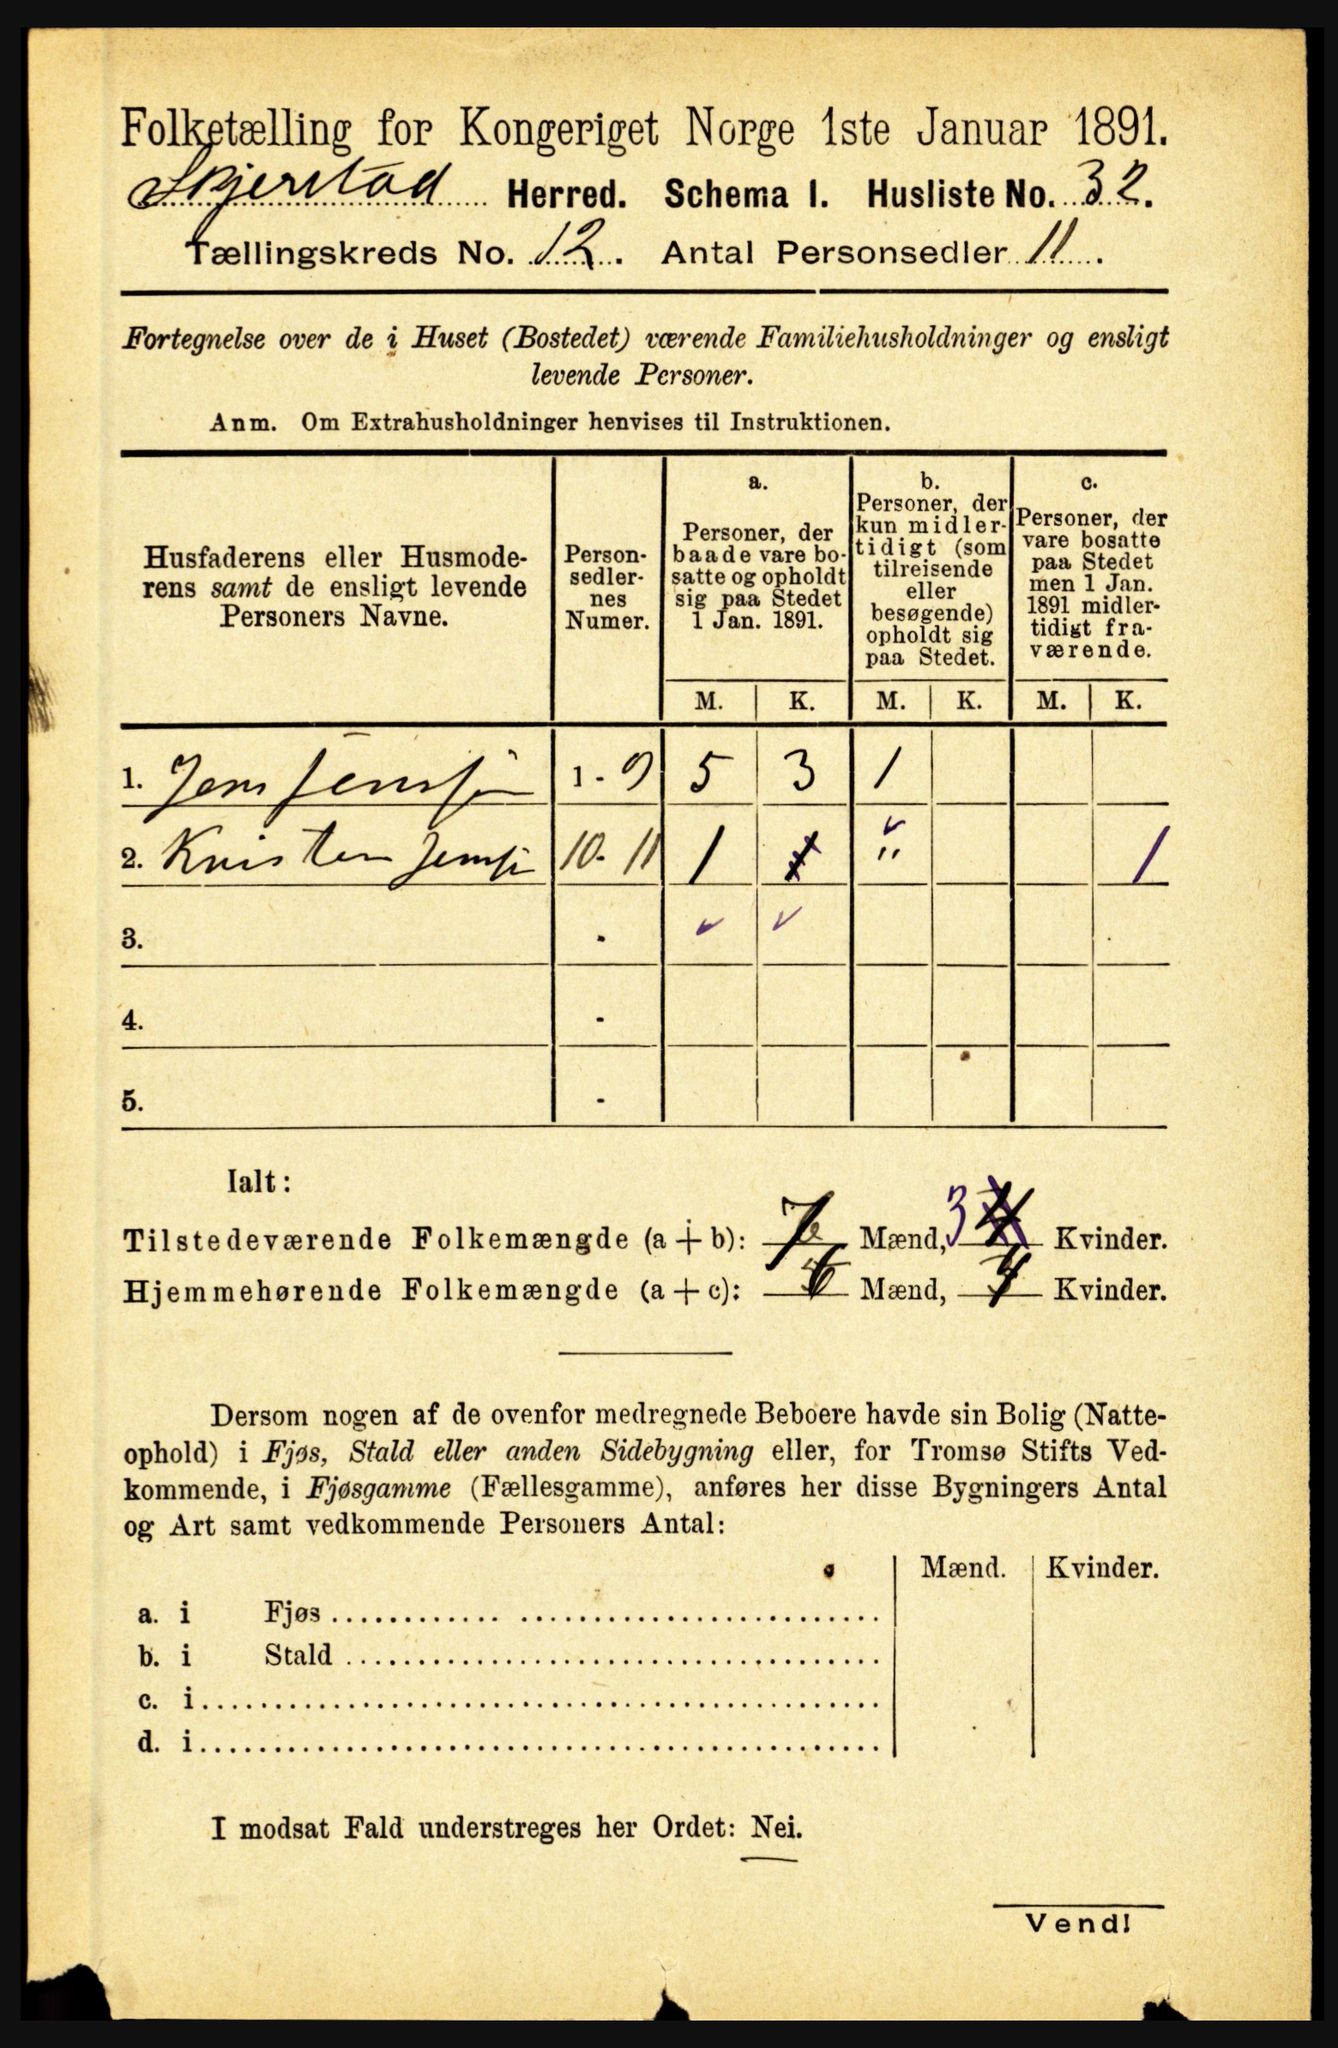 Folketælling for Kongeriget Norge 1ste Januar 1891.
Skjerstad Herred. Schema I. Husliste No. 32.
Tællingskreds No. 12. Antal Personsedler 11.
Fortegnelse over de i Huset (Bostedet) værende Familiehusholdninger og ensligt
levende Personer.
Anm. Om Extrahusholdninger henvises til Instruktionen.
Husfaderens eller Husmode-
rens samt de ensligt levende
Personers Navne.
Person-
sedler-
nes
Numer.
a.
Personer, der
baade vare bo-
satte og opholdt
sig paa Stedet
1 Jan. 1891.
b.
Personer, der
kun midler-
tidigt (som
tilreisende
eller
besøgende)
opholdt sig
paa Stedet.
c.
Personer, der
vare bosatte
paa Stedet
men 1 Jan.
1891 midler-
tidigt fra-
værende.
M. K. M. K. M. K.
1. Jens Jensen 1 - 9 5 3 1
2. Kristen Jensen 10 - 11 1 1 " 1
3. -
4. -
5. -
Ialt:
Tilstedeværende Folkemængde (a + b): 7 Mænd, 3 4 Kvinder.
Hjemmehørende Folkemængde (a + c): 6 Mænd, 4 Kvinder.
Dersom nogen af de ovenfor medregnede Beboere havde sin Bolig (Natte-
ophold) i Fjøs, Stald eller anden Sidebygning eller, for Tromsø Stifts Ved-
kommende, i Fjøsgamme (Fællesgamme), anføres her disse Bygningers Antal
og Art samt vedkommende Personers Antal:
Mænd. Kvinder.
a. i Fjøs
b. i Stald
c. i
d. i
I modsat Fald understreges her Ordet: Nei.
Vend!